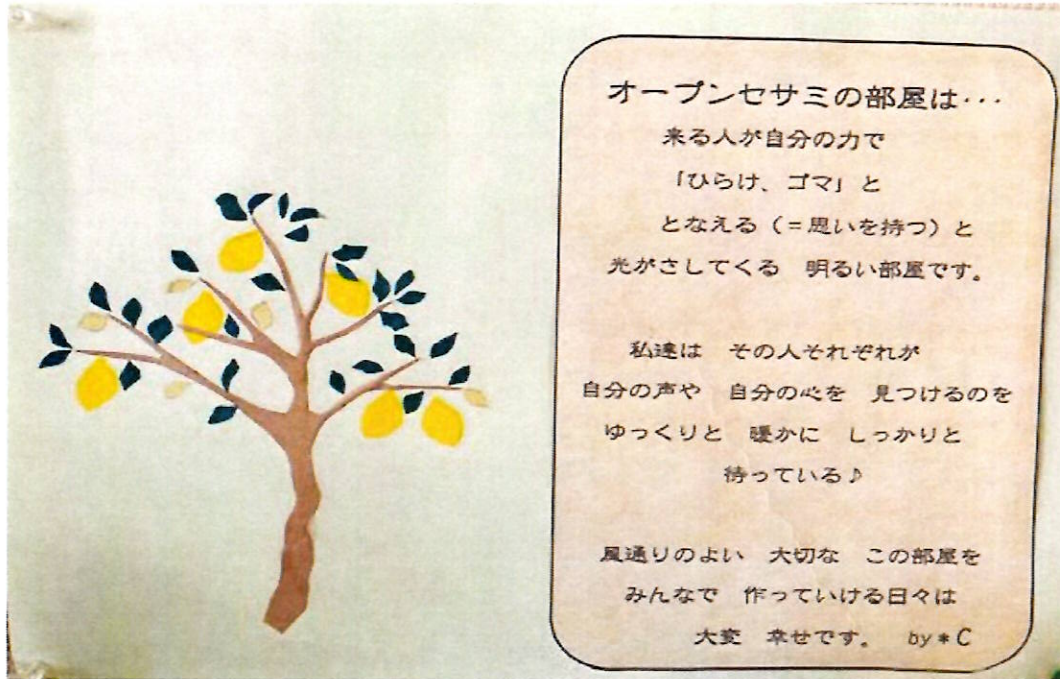 オープンセサミの部屋は・・・
来る人が自分の力で
「ひらけ、ゴマ」と
となえる（＝思いを持つ）と
光がさしてくる　明るい部屋です。
私達は　その人それぞれが
自分の声や　自分の心を　見つけるのを
ゆっくりと　暖かに　しっかりと
待っている♪
風通りのよい　大切な　この部屋を
みんなで　作っていける日々は
大変　幸せです。　by＊C